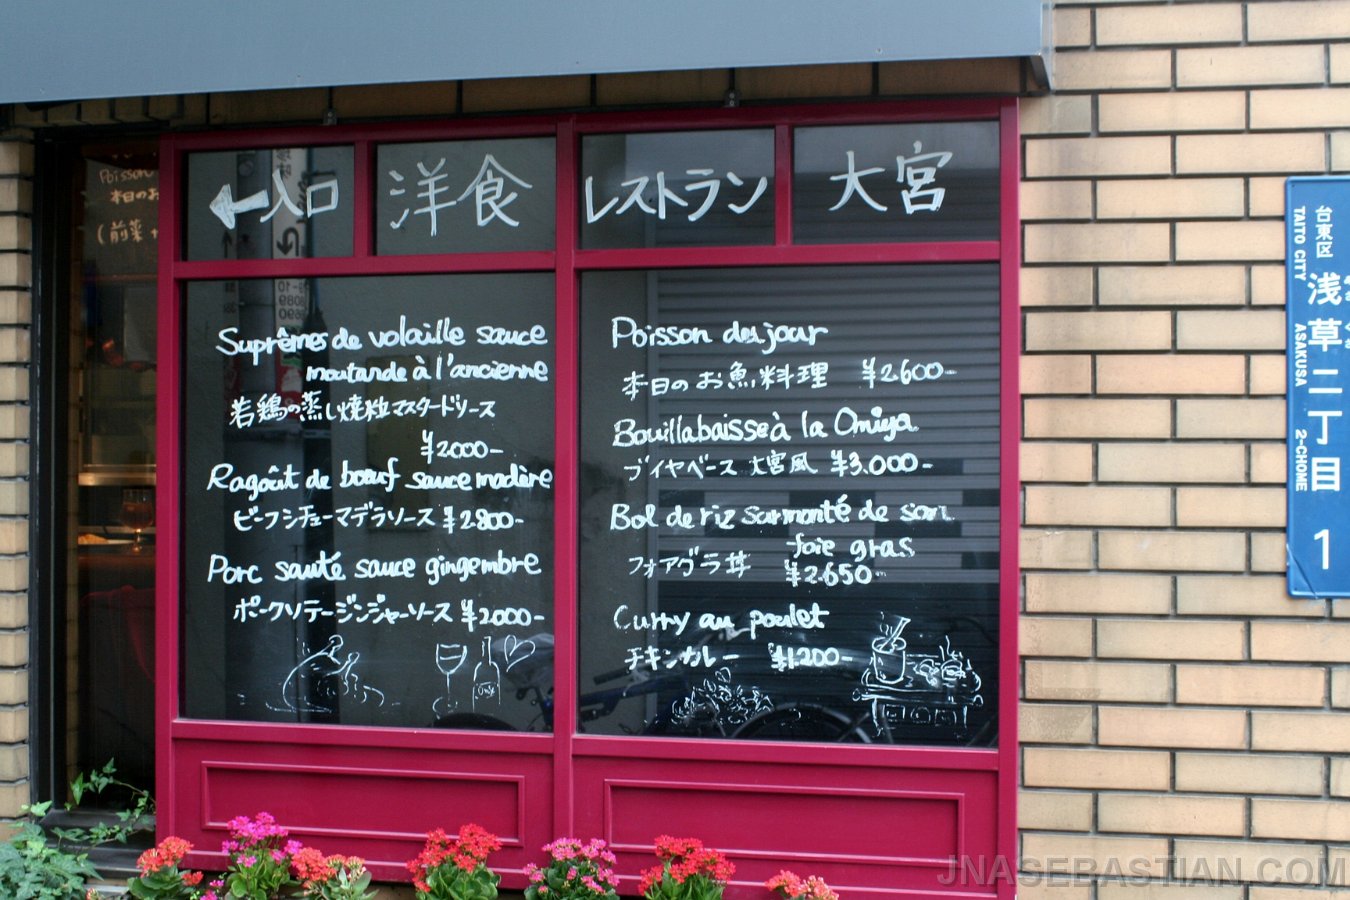 Poisson
本日のお
(前菜
←入口 洋食 レストラン 大宮
Suprêmes de volaille sauce
moutarde à l'ancienne
若鶏の蒸し焼粒マスタードソース
¥2000-
Ragoût de bœuf sauce madère
ビーフシチューマデラソース ¥2800-
Porc sauté sauce gingembre
ポークソテージンジャーソース ¥2000-
Poisson du jour
本日のお魚料理 ¥2600-
Bouillabaisse à la Omiya
ブイヤベース 大宮風 ¥3.000-
Bol de riz surmonté de son
foie gras
フォアグラ丼 ¥2.650-
Curry au poulet
チキンカレー ¥1.200-
台東区
TAITO CITY
浅草二丁目
ASAKUSA 2-CHOME
1
JNASEBASTIAN.COM